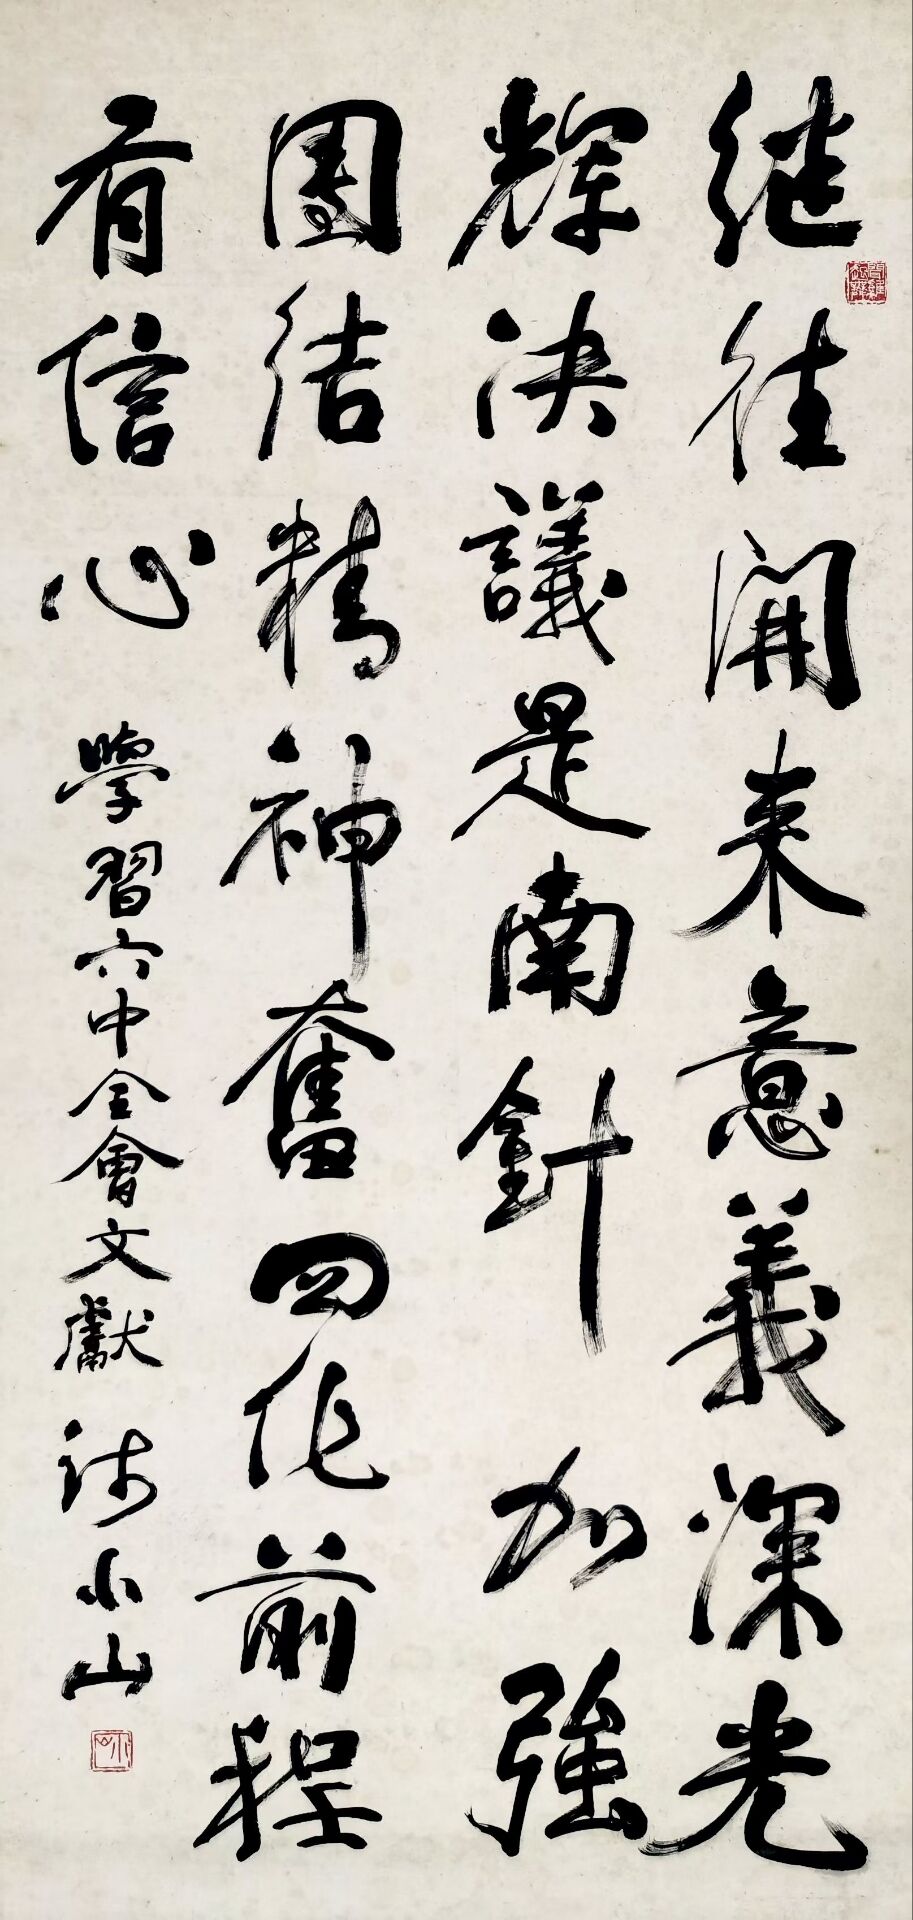 继往開来意義深光
輝決議是南針加強
團结精神奮四化前程
有信心
學習六中全會文獻 小山